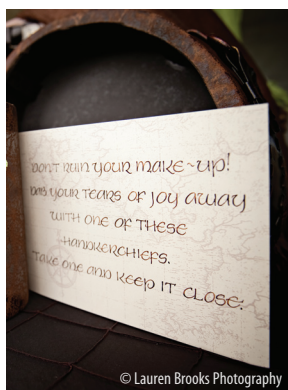 Don't ruin your make-up!
Dab your tears of joy away
with one of these
handkerchiefs.
Take one and keep it close.
© Lauren Brooks Photography